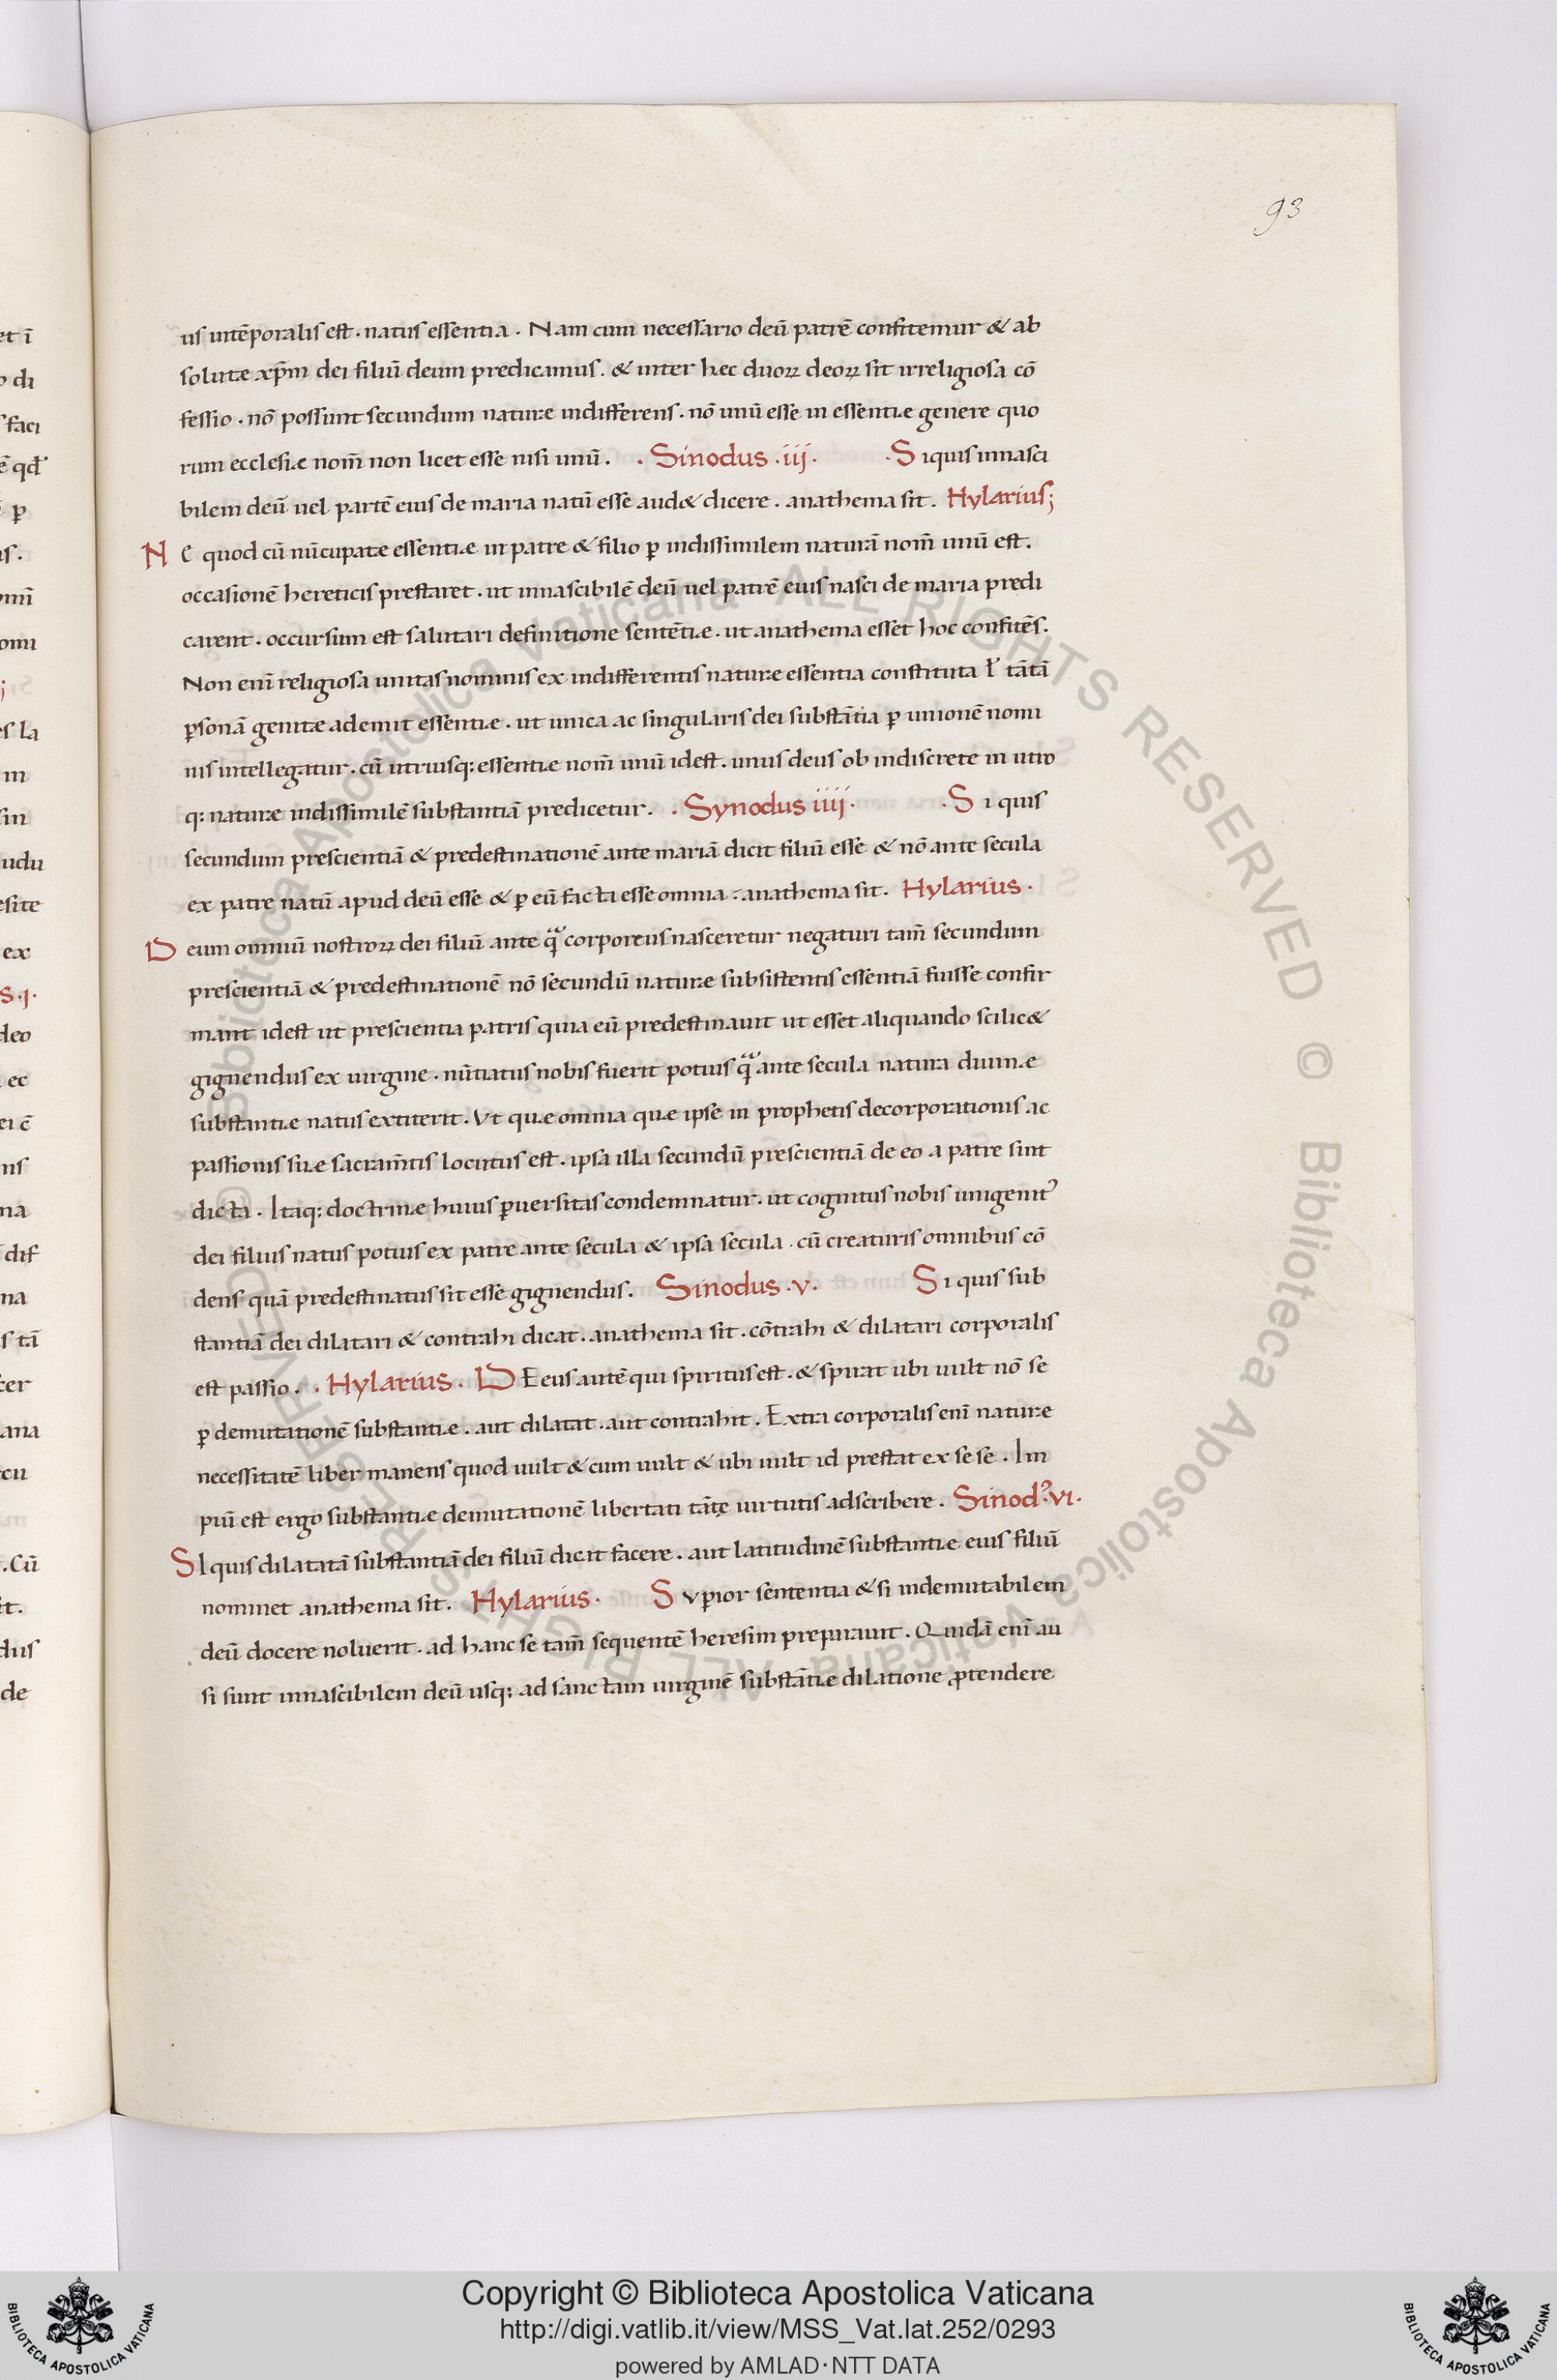 93
us intēporalis est . natus essentia . Nam cum necessario deū patrē confitemur & ab
solutæ xp̄m dei filiū deum predicamus . & inter hec duoꝝ deoꝝ sit irreligiosa cō
fessio . nō possunt secundum naturæ indifferens . nō unū esse in essentiæ genere quo
rum ecclesiæ nom̄ non licet esse nisi unū . . Sinodus .iij. . Siquis innasci
bilem deū uel partē eius de maria natū esse aud& dicere . anathema sit . Hylarius;
Ne quod cū nūcupatæ essentiæ in patre & filio ꝑ indissimilem naturā nom̄ unū est .
occasionē hereticis prestaret . ut innascibilē deū uel patrē eius nasci de maria predi
carent . occursum est salutari definitione sentētiæ . ut anathema esset hoc confitēs .
Non enī religiosa unitas nominis ex indifferentis naturæ essentia constituta ł tātā
ꝑsonā genitæ ademit essentiæ . ut unica ac singularis dei substātia ꝑ unionē nomi
nis intellegatur . cū utriusq; essentiæ nom̄ unū idest . unus deus ob indiscretæ in utro
q; naturæ indissimilē substantiā predicetur . . Synodus iiij . . Si quis
secundum prescientiā & predestinationē ante mariā dicit filiū esse & nō ante secula
ex patre natū apud deū esse & ꝑ eū facta esse omnia : anathema sit . Hylarius .
Deum omniū nostroꝝ dei filiū ante qᷓ corporeus nasceretur negaturi tam̄ secundum
prescientiā & predestinationē nō secundū naturæ subsistentis essentiā fuisse confir
mant idest ut prescientia patris quia eū predestinauit ut esset aliquando scilic&
gignendus ex uirgine . nūtiatus nobis fuerit potius qᷓ ante secula natura diuinæ
substantiæ natus extiterit . Vt quæ omnia quæ ipse in prophetis decorporationis ac
passionis suæ sacram̄tis locutus est . ipsa illa secundū prescientiā de eo a patre sint
dicta . Itaq; doctrinæ huius ꝑuersitas condemnatur . ut cognitus nobis unigenit᾿
dei filius natus potius ex patre ante secula & ipsa secula . cū creaturis omnibus cō
dens quā predestinatus sit esse gignendus . Sinodus .v. Si quis sub
stantiā dei dilatari & contrahi dicat . anathema sit . cōtrahi & dilatari corporalis
est passio . . Hylarius . DEeus autē qui spiritus est . & spirat ubi uult nō se
ꝑ demutationē substantiæ . aut dilatat . aut contrahit . Extra corporalis enī naturæ
necessitatē liber manens quod uult & cum uult & ubi uult id prestat ex se se . Im
piū est ergo substantiæ demutationē libertati tātę uirtutis adscribere . Sinod᾿.vi.
SI quis dilatatā substantiā dei filiū dicit facere . aut latitudinē substantiæ eius filiū
nominet anathema sit . Hylarius . Svꝑior sententia & si indemutabilem
deū docere noluerit . ad hanc se tam̄ sequentē heresim preparauit . Quidā enī au
si sunt innascibilem deū usq; ad sanctam uirginē substātiæ dilatione ꝓtendere
Copyright © Biblioteca Apostolica Vaticana
http://digi.vatlib.it/view/MSS_Vat.lat.252/0293
powered by AMLAD·NTT DATA